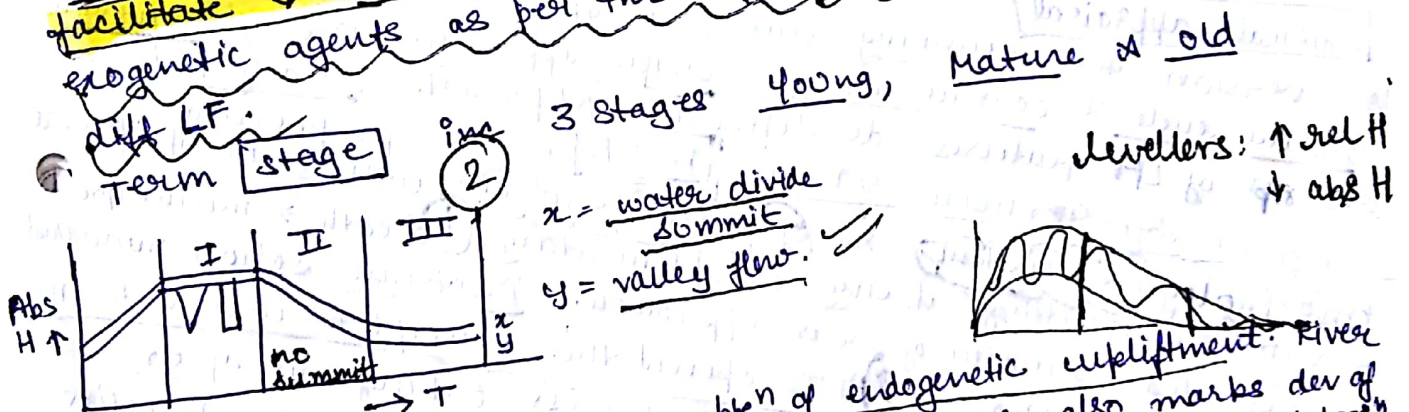 facilitate
exogenetic agents as per
diff LF.
Term stage
3 stages: Young, Mature & old
levellers: ↑ rel H
↓ abs H
x = water divide
summit
y = valley flow.
2
I II III
Abs
H ↑
no
summit
x
y
→ T
of endogenetic upliftment. River
also marks dev of